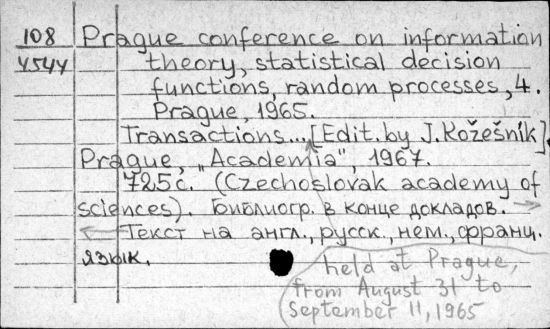 108 Prague conference on information
4544 theory, statistical decision
functions, random processes, 4.
Prague, 1965.
Transactions...[Edit. by J. Kožešník].
Prague, „Academia", 1967.
725 с. (Czechoslovak academy of
sciences). Библиогр. в конце докладов. →
← Текст на англ., русск., нем., франц.
язык.
held at Prague,
from August 31 to
September 11, 1965